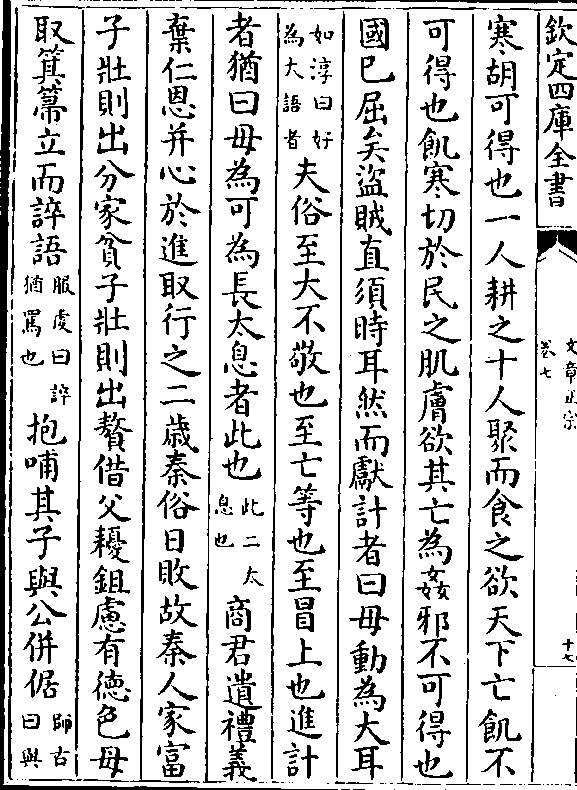 欽定四庫全書
文章正宗
卷七
十七
寒胡可得也一人耕之十人聚而食之欲天下亡飢不
可得也飢寒切於民之肌膚欲其亡為姦邪不可得也
國已屈矣盜賊直須時耳然而獻計者曰毋動為大耳
如淳曰好
為大語者
夫俗至大不敬也至亡等也至冒上也進計
者猶曰毋為可為長太息者此也
此二太
息也
商君遺禮義
棄仁恩并心於進取行之二歲秦俗日敗故秦人家富
子壯則出分家貧子壯則出贅借父耰鉏慮有德色母
取箕箒立而誶語
服虔曰誶
猶罵也
抱哺其子與公併倨
師古
曰與